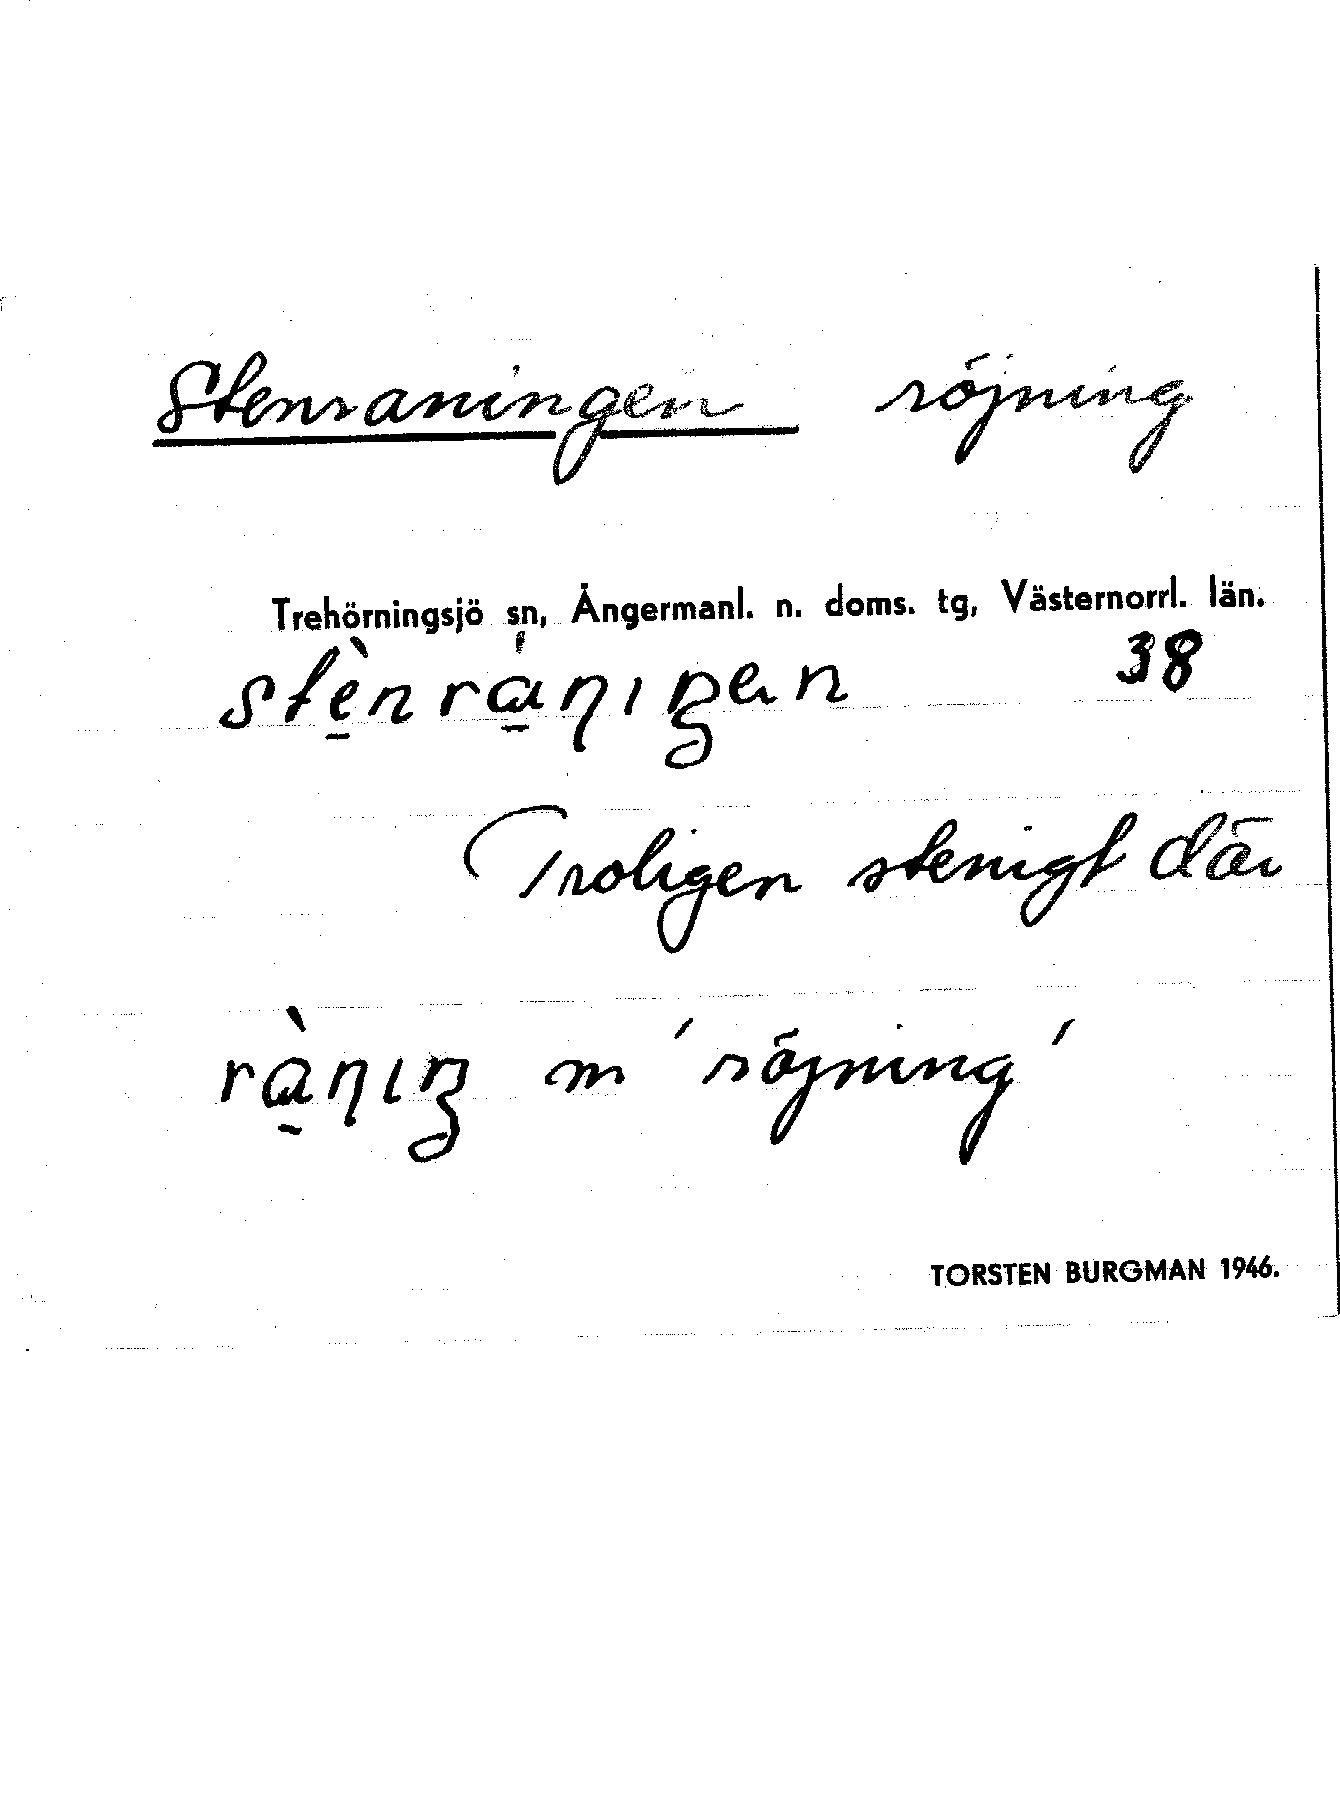 Stenraningen röjning
Trehörningsjö sn, Ångermanl. n. doms. tg, Västernorrl. län.
stènránıŋen 38
Troligen stenigt där
rànıŋ m 'röjning'
TORSTEN BURGMAN 1946.